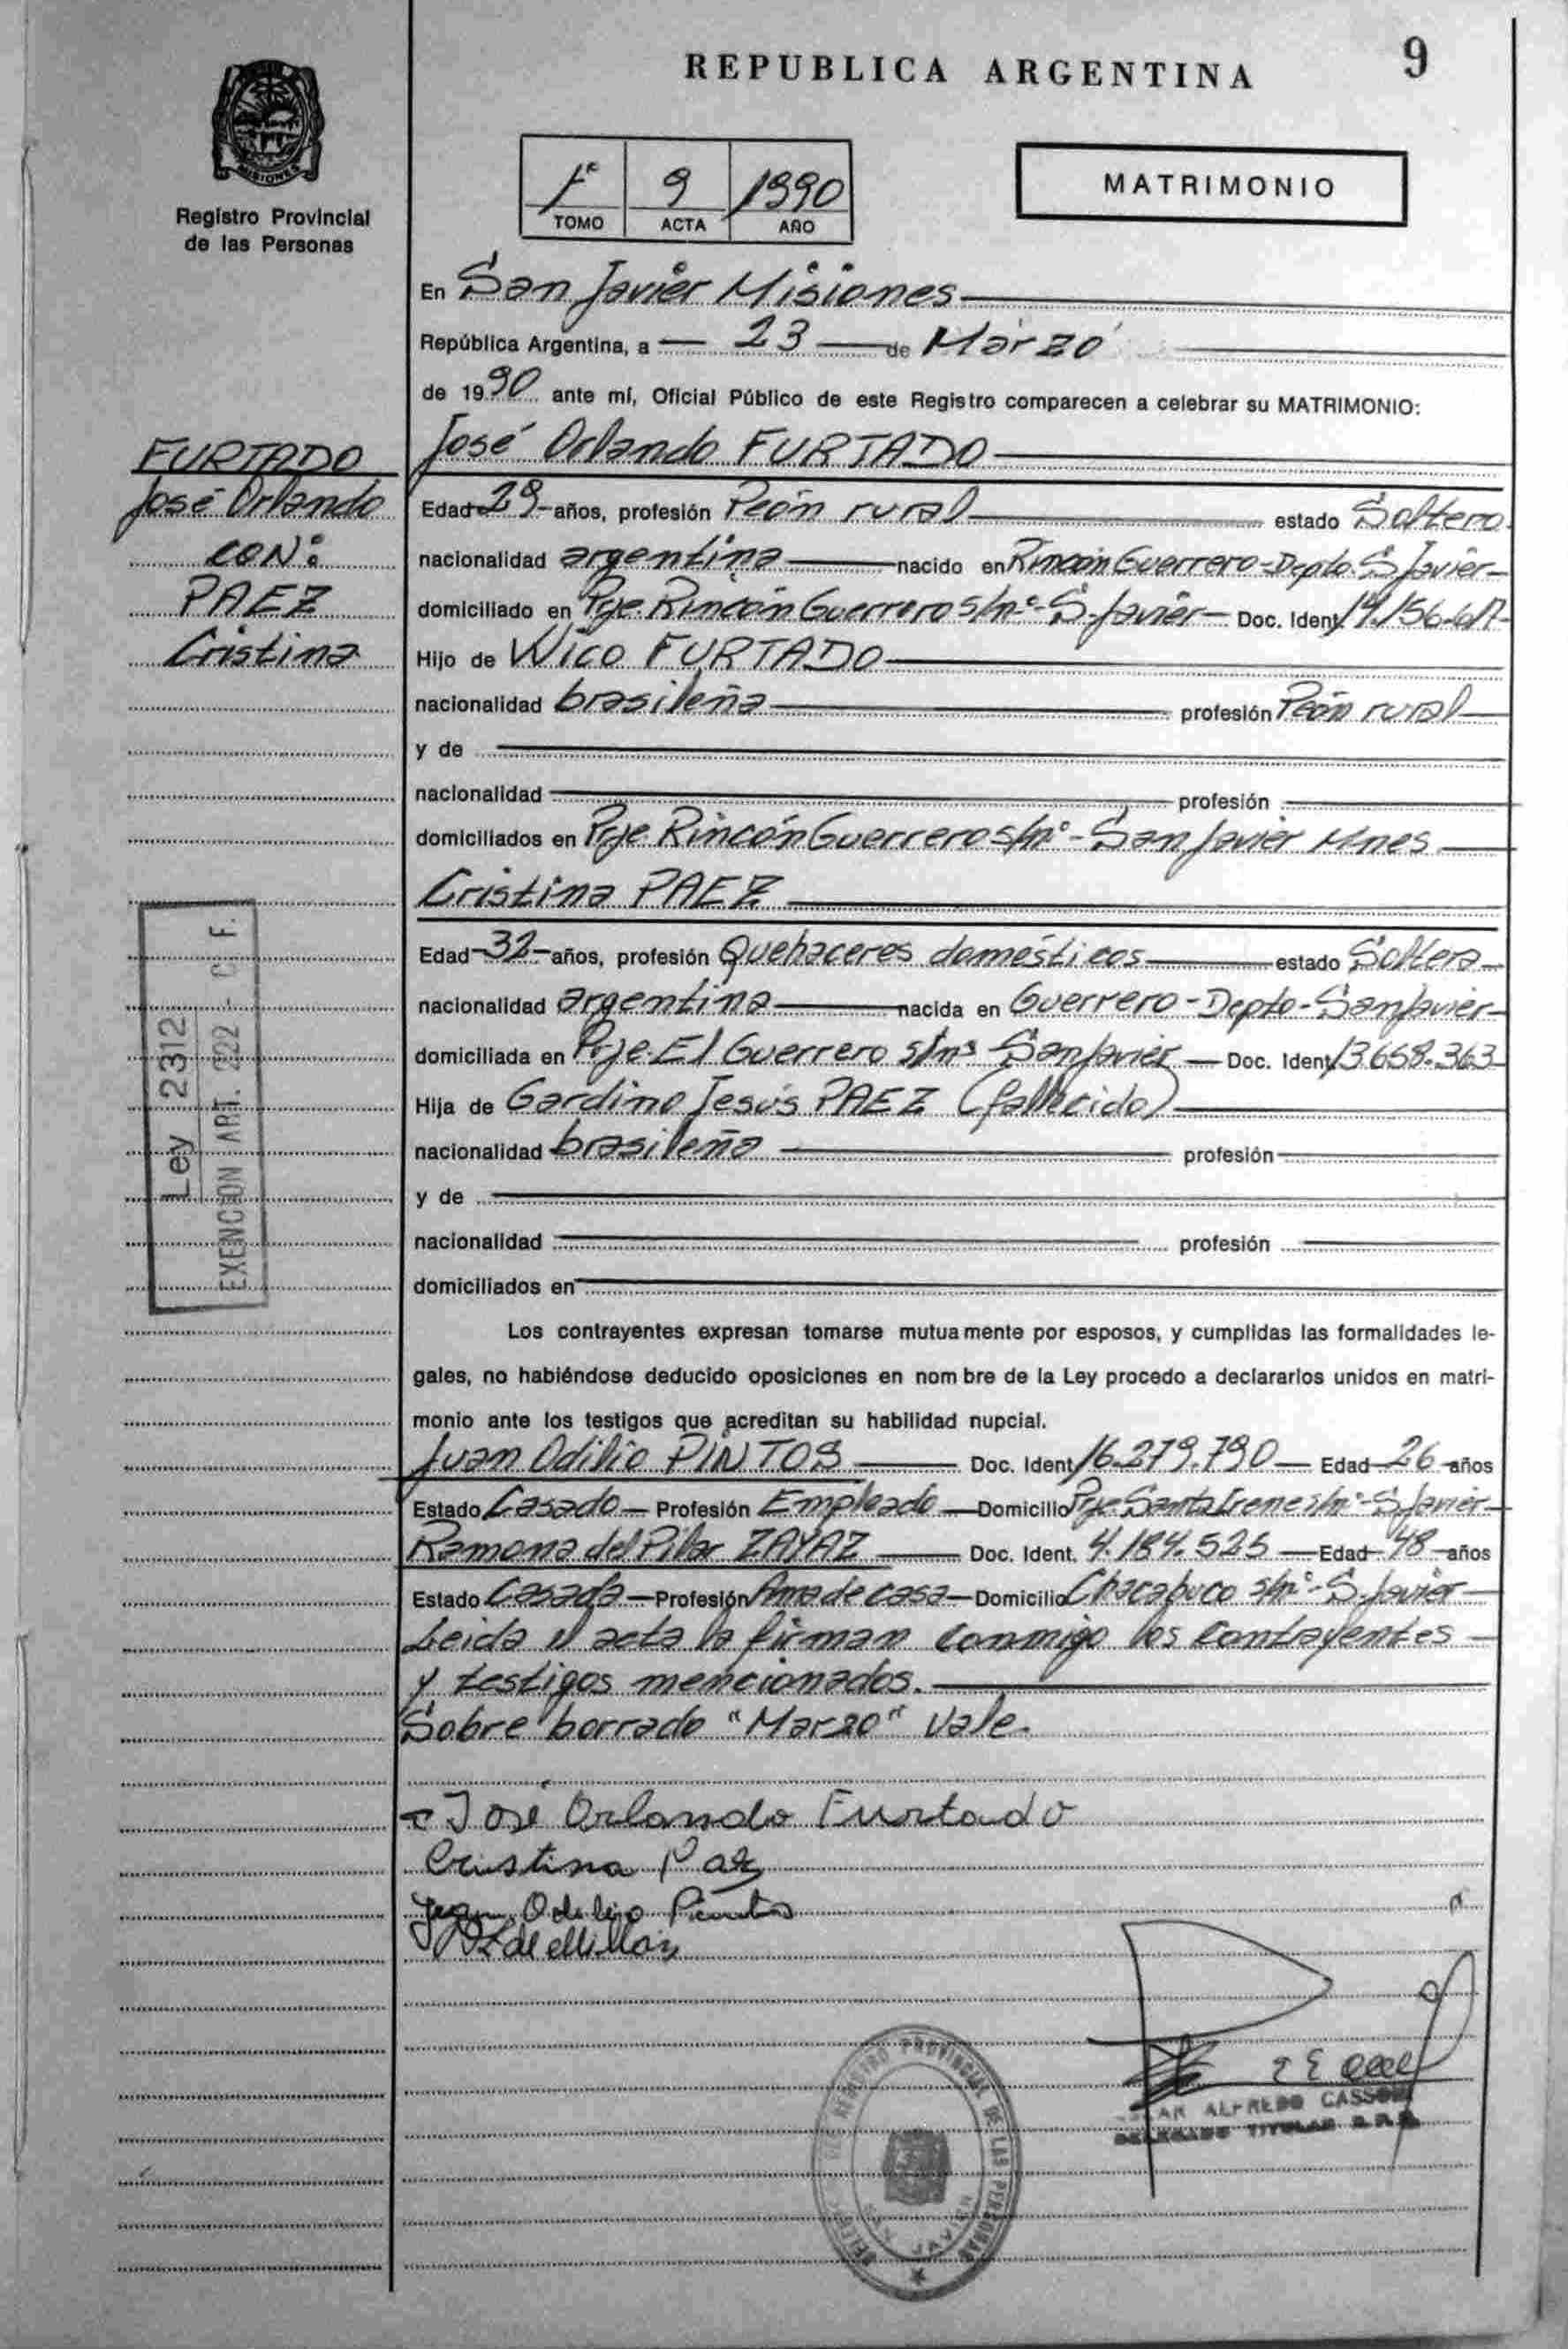 9
REPUBLICA ARGENTINA
MISIONES
Registro Provincial
de las Personas
1º 9 1990
TOMO ACTA AÑO
MATRIMONIO
En San Javier Misiones
República Argentina, a 23 de Marzo
de 1990 ante mí, Oficial Público de este Registro comparecen a celebrar su MATRIMONIO:
FURTADO
José Orlando
CON:
PAEZ
Cristina
José Orlando FURTADO
Edad 29 años, profesión Peón rural estado Soltero
nacionalidad argentina nacido en Rincón Guerrero-Depto. S. Javier
domiciliado en Pje. Rincón Guerrero s/nº-S. Javier Doc. Ident.
Hijo de Wico FURTADO
nacionalidad brasileña profesión Peón rural
y de
nacionalidad profesión
domiciliados en Pje. Rincón Guerrero s/nº-San Javier Mnes
Cristina PAEZ
Edad 32 años, profesión Quehaceres domésticos estado Soltera
nacionalidad argentina nacida en Guerrero-Depto-San Javier
domiciliada en Pje. El Guerrero s/nº San Javier Doc. Ident. 13.658.363
Hija de Gardino Jesús PAEZ (fallecido)
nacionalidad brasileña profesión
y de
nacionalidad profesión
domiciliados en
Ley 2312
EXENCION ART. 222 - C. F.
Los contrayentes expresan tomarse mutuamente por esposos, y cumplidas las formalidades le-
gales, no habiéndose deducido oposiciones en nombre de la Ley procedo a declararlos unidos en matri-
monio ante los testigos que acreditan su habilidad nupcial.
Juan Odilio PINTOS Doc. Ident. 16.279.790 Edad 26 años
Estado Casado Profesión Empleado Domicilio Pje. Santa Irene s/nº-S. Javier
Ramona del Pilar ZAYAZ Doc. Ident. 4.184.525 Edad 48 años
Estado Casada Profesión Ama de casa Domicilio Chacabuco s/nº-S. Javier
Leida el acta la firman conmigo los contrayentes
y testigos mencionados.
Sobre borrado "Marzo" Vale.
José Orlando Furtado
Cristina Paez
Odilio Pintos
ALFREDO CASSONI
DELEGADO TITULAR
REGISTRO PROVINCIAL DE LAS PERSONAS
SAN JAVIER